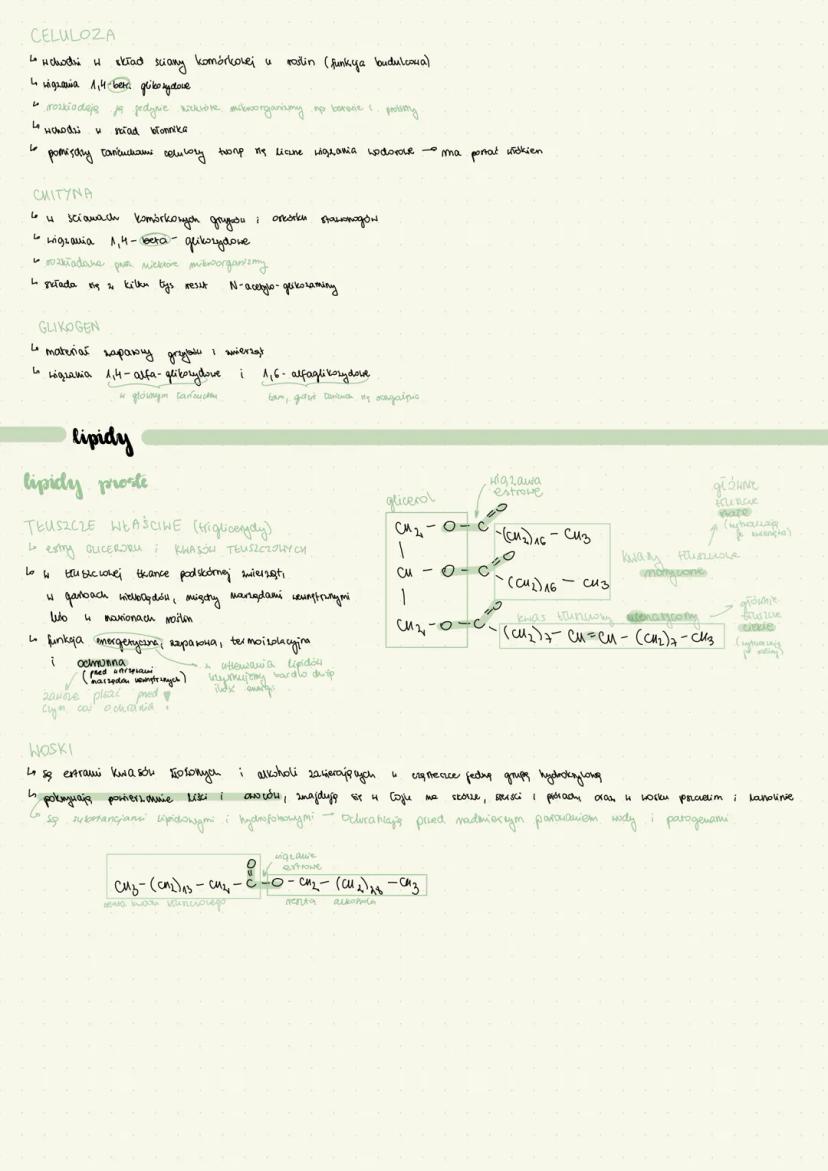 CELULOZA
↳ wchodzi w skład ściany komórkowej u roślin (funkcja budulcowa)
↳ wiązania 1,4-beta glikozydowe
↳ rozkładają ją jedynie niektóre mikroorganizmy np bakterie i protisty
↳ wchodzi w skład błonnika
↳ pomiędzy łańcuchami celulozy tworzą się liczne wiązania wodorowe → ma postać włókien
CHITYNA
↳ w ścianach komórkowych grzybów i oskórku stawonogów
↳ wiązania 1,4-beta- glikozydowe
↳ rozkładana przez niektóre mikroorganizmy
↳ składa się z kilku tys reszt N-acetylo-glikozaminy
GLIKOGEN
↳ materiał zapasowy grzybów i zwierząt
↳ wiązania 1,4-alfa-glikozydowe i 1,6-alfaglikozydowe
w głównym łańcuchu
tam, gdzie łańcuch się rozgałęzia
lipidy
lipidy proste
TŁUSZCZE WŁAŚCIWE (triglicerydy)
↳ estry GLICEROLU i KWASÓW TŁUSZCZOWYCH
↳ w tłuszczowej tkance podskórnej zwierząt,
w garbach wielbłądów, między narządami wewnętrznymi
lub w nasionach roślin
↳ funkcja energetyczna, zapasowa, termoizolacyjna
i ochronna
(przed urazami
narządów wewnętrznych)
zawsze pisać przed
czym coś ochrania !
z utleniania lipidów
uzyskujemy bardzo dużą
ilość energii
glicerol
wiązania
estrowe
CH2 – O – C = O
– (CH2)16 – CH3
CH – O – C = O
– (CH2)16 – CH3
CH2 – O – C = O
– (CH2)7 – CH = CH – (CH2)7 – CH3
kwasy tłuszczowe
nasycone
głównie
tłuszcze
stałe
(wytwarzają
je zwierzęta)
kwas tłuszczowy nienasycony
głównie
tłuszcze
ciekłe
(wytwarzają
je rośliny)
WOSKI
↳ są estrami kwasów tłuszczowych i alkoholi zawierających w cząsteczce jedną grupę hydroksylową
↳ pokrywają powierzchnie liści i owoców, znajdują się w łoju na skórze, sierści i piórach oraz w wosku pszczelim i lanolinie
↳ są substancjami lipidowymi i hydrofobowymi → ochraniają przed nadmiernym parowaniem wody i patogenami
wiązanie
estrowe
O
CH3 – (CH2)13 – CH2 – C – O – CH2 – (CH2)28 – CH3
reszta kwasu tłuszczowego
reszta alkoholu